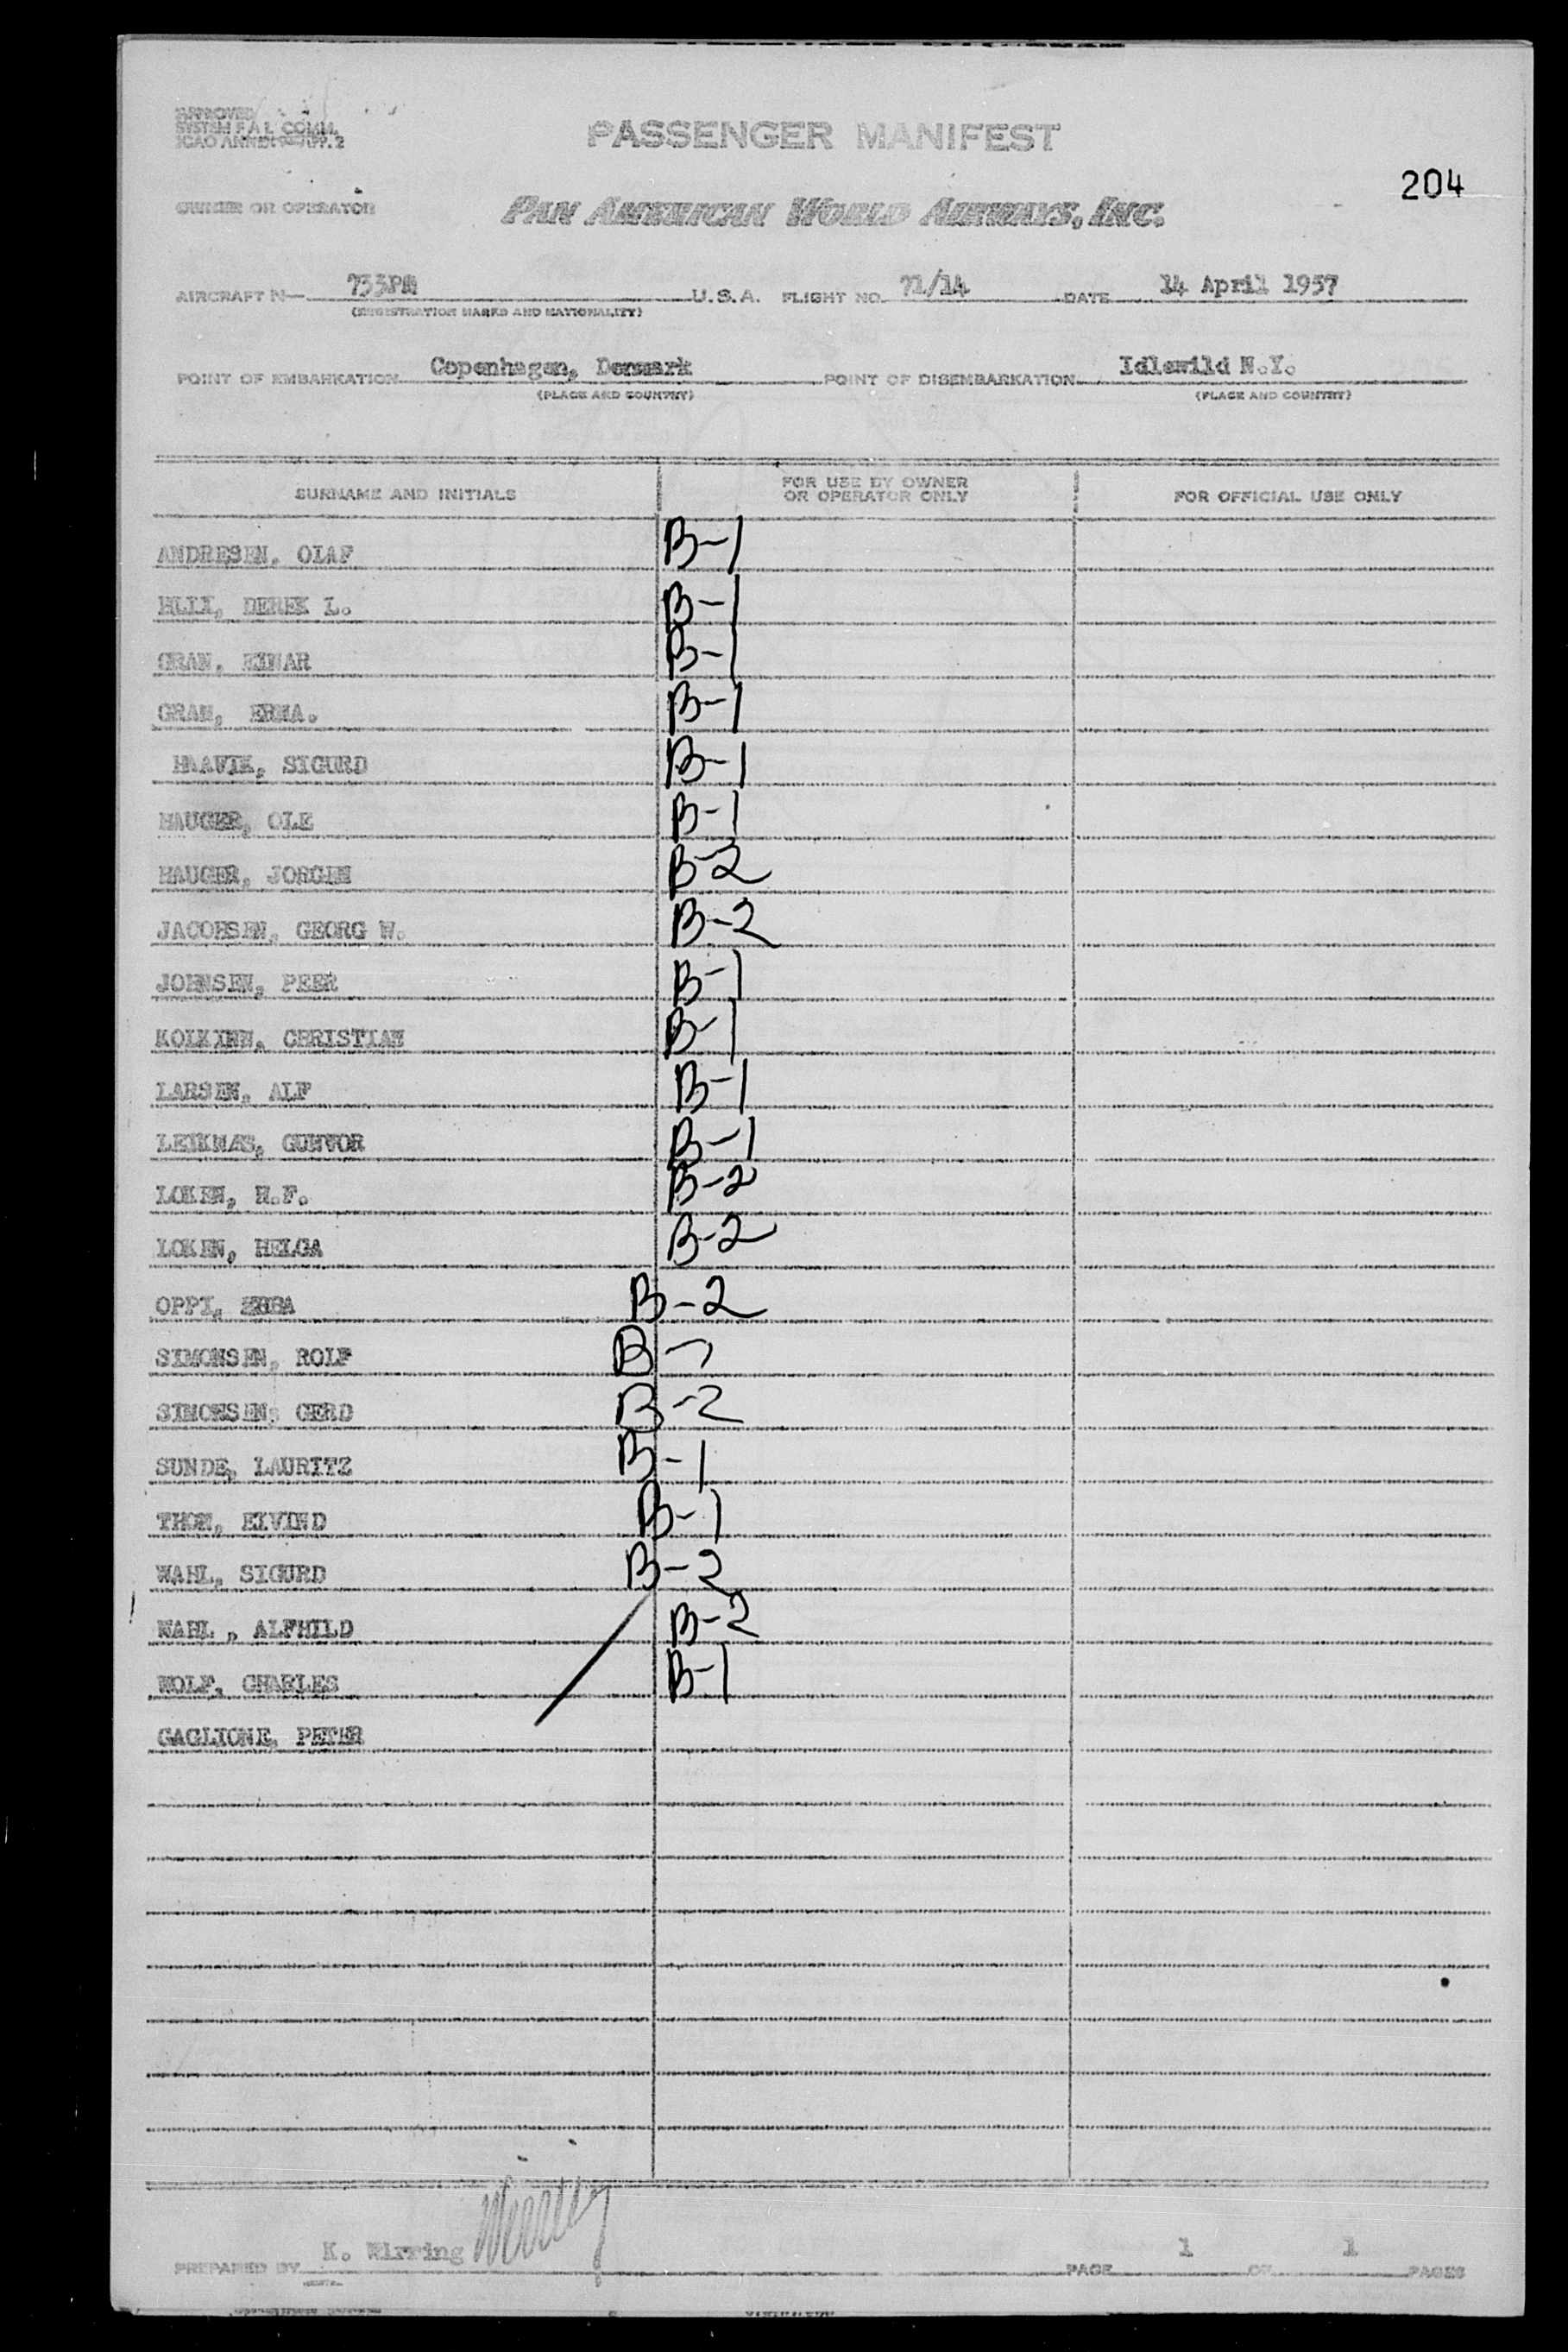 APPROVED
SYSTEM F A L COMM.
ICAO ANNEX 9-APP. 2
PASSENGER MANIFEST
204
OWNER OR OPERATOR PAN AMERICAN WORLD AIRWAYS, INC.
AIRCRAFT N— 733PM U.S.A. FLIGHT NO. 71/14 DATE 14 April 1957
(REGISTRATION MARKS AND NATIONALITY)
POINT OF EMBARKATION Copenhagen, Denmark POINT OF DISEMBARKATION Idlewild N.Y.
(PLACE AND COUNTRY) (PLACE AND COUNTRY)
SURNAME AND INITIALS FOR USE BY OWNER OR OPERATOR ONLY FOR OFFICIAL USE ONLY
ANDRESEN, OLAF B-1
DEREK L. B-1
GRAN, EINAR B-1
GRAN, ERNA. B-1
HAAVIK, SIGURD B-1
HAUGER, OLE B-1
HAUGER, JORGEN B-2
JACOBSEN, GEORG W. B-2
JOHNSEN, PEER B-1
CHRISTIAN B-1
LARSEN, ALF B-1
LEIKNÆS, GUNVOR B-1
LOKEN, H.F. B-2
LOKEN, HELGA B-2
OPPI, EBBA B-2
SIMONSEN, ROLF B-
SIMONSEN, GERD B-2
SUNDE, LAURITZ B-1
THOM, EIVIND B-1
WAHL, SIGURD B-2
WAHL, ALFHILD B-2
WOLF, CHARLES B-1
GAGLIONE, PETER
PREPARED BY K. Wirring PAGE 1 OF 1 PAGES